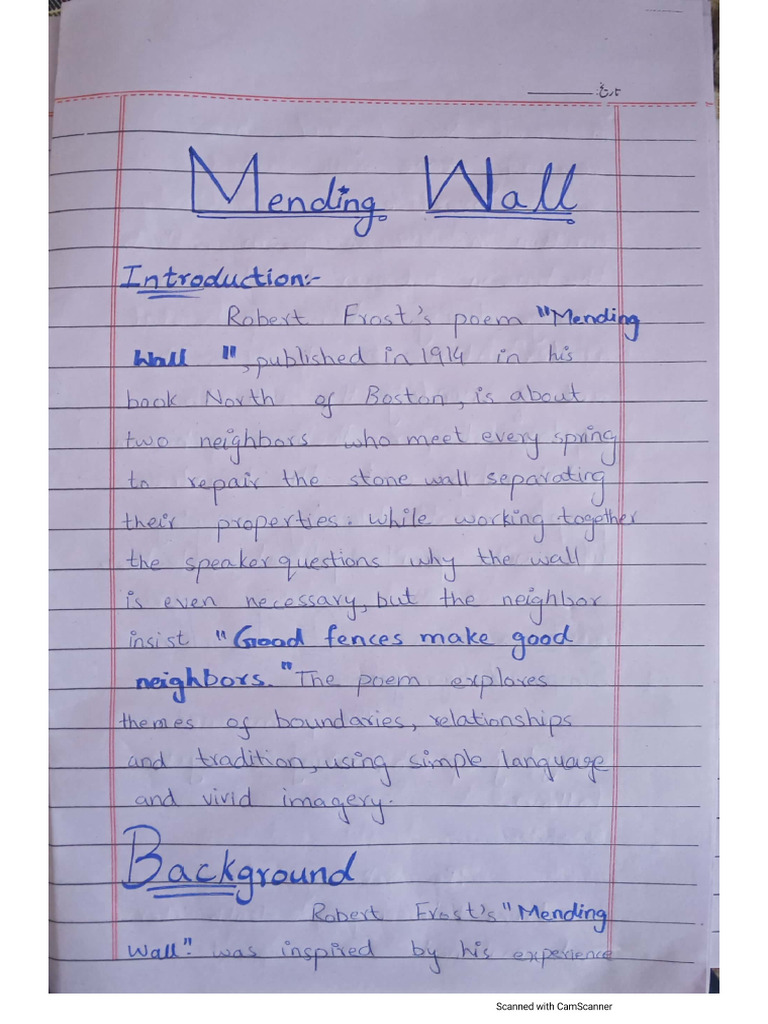 تاریخ:
Mending Wall
Introduction:-
Robert Frost's poem "Mending
Wall", published in 1914 in his
book North of Boston, is about
two neighbors who meet every spring
to repair the stone wall separating
their properties. While working together
the speaker questions why the wall
is even necessary, but the neighbor
insist "Good fences make good
neighbors." The poem explores
themes of boundaries, relationships
and tradition, using simple language
and vivid imagery.
Background
Robert Frost's "Mending
Wall" was inspired by his experience
Scanned with CamScanner